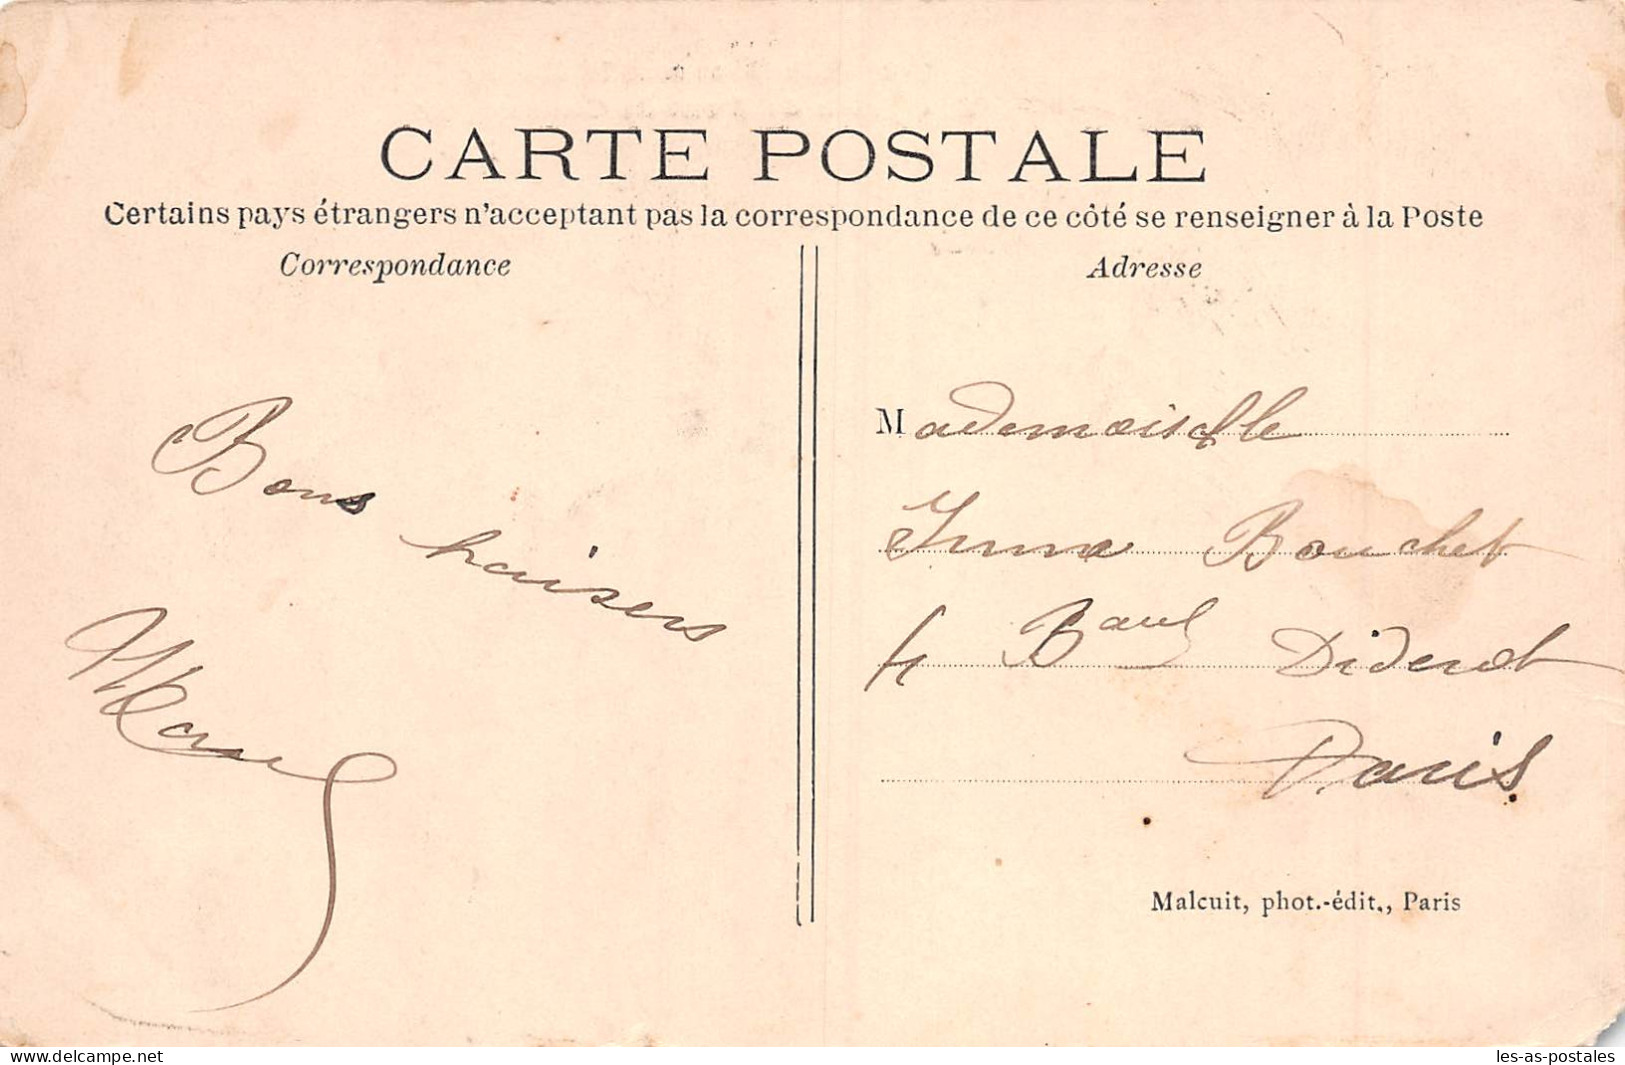 CARTE POSTALE
Certains pays étrangers n'acceptant pas la correspondance de ce côté se renseigner à la Poste
Correspondance
Bons baisers
Adresse
Mademoiselle
Bouchet
4 Baul Diderot
Paris
Malcuit, phot.-édit., Paris
delcampe.net
les-as-postales